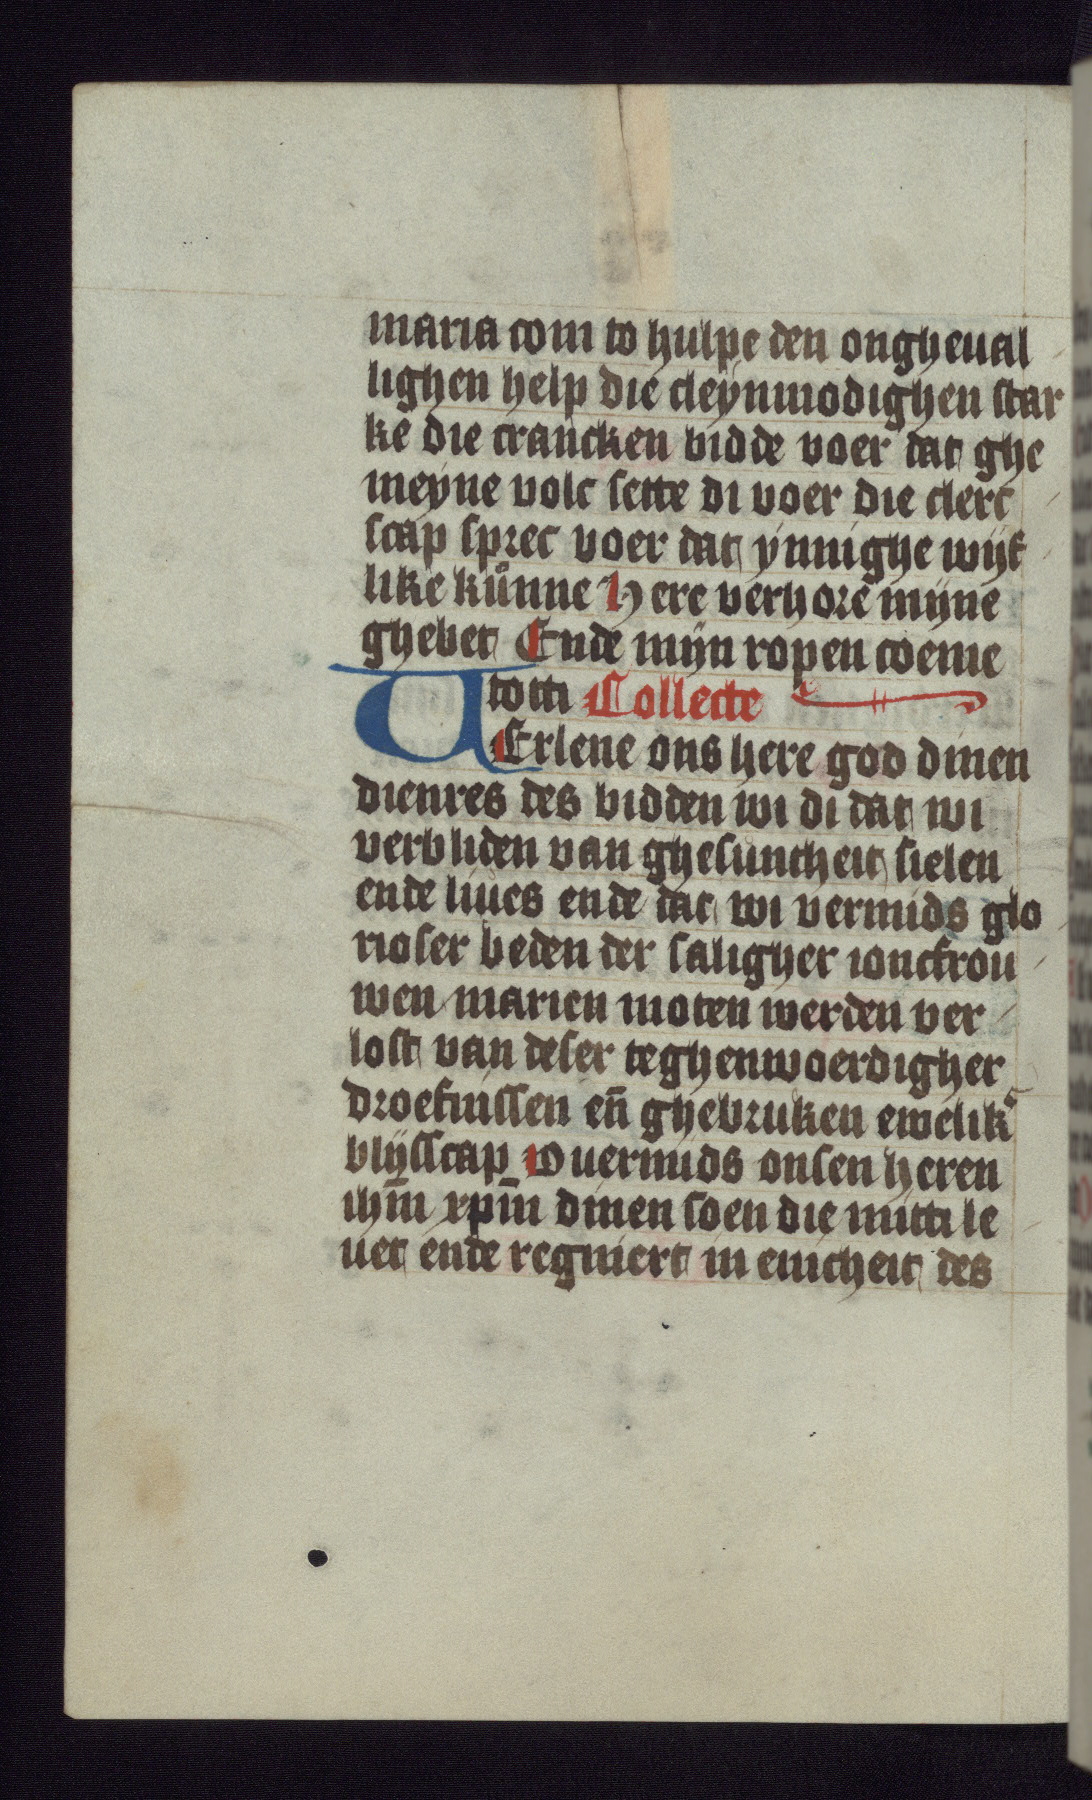 maria com to hulpe den ongheual
lighen help die cleynmodighen star
ke die crancken bidde voer dat ghe
meyne volc sette di voer die clerc
scap sprec voer dat ynnighe wijf
like kůnne Here verhore mijne
ghebet Ende mijn ropen coeme
totti Collecte
VErlene ons here god dinen
dienres des bidden wi di dat wi
verbliden van ghesuntheit sielen
ende liues ende dat wi vermids glo
rioser beden der saligher ioncfrou
wen marien moten werden ver
lost van deser teghenwoerdigher
droefnissen en̄ ghebruken ewelikʳ
blijsscap Ouermids onsen heren
ihm̄ xpm̄ dinen soen die mitti le
uet ende regniert in enicheit des